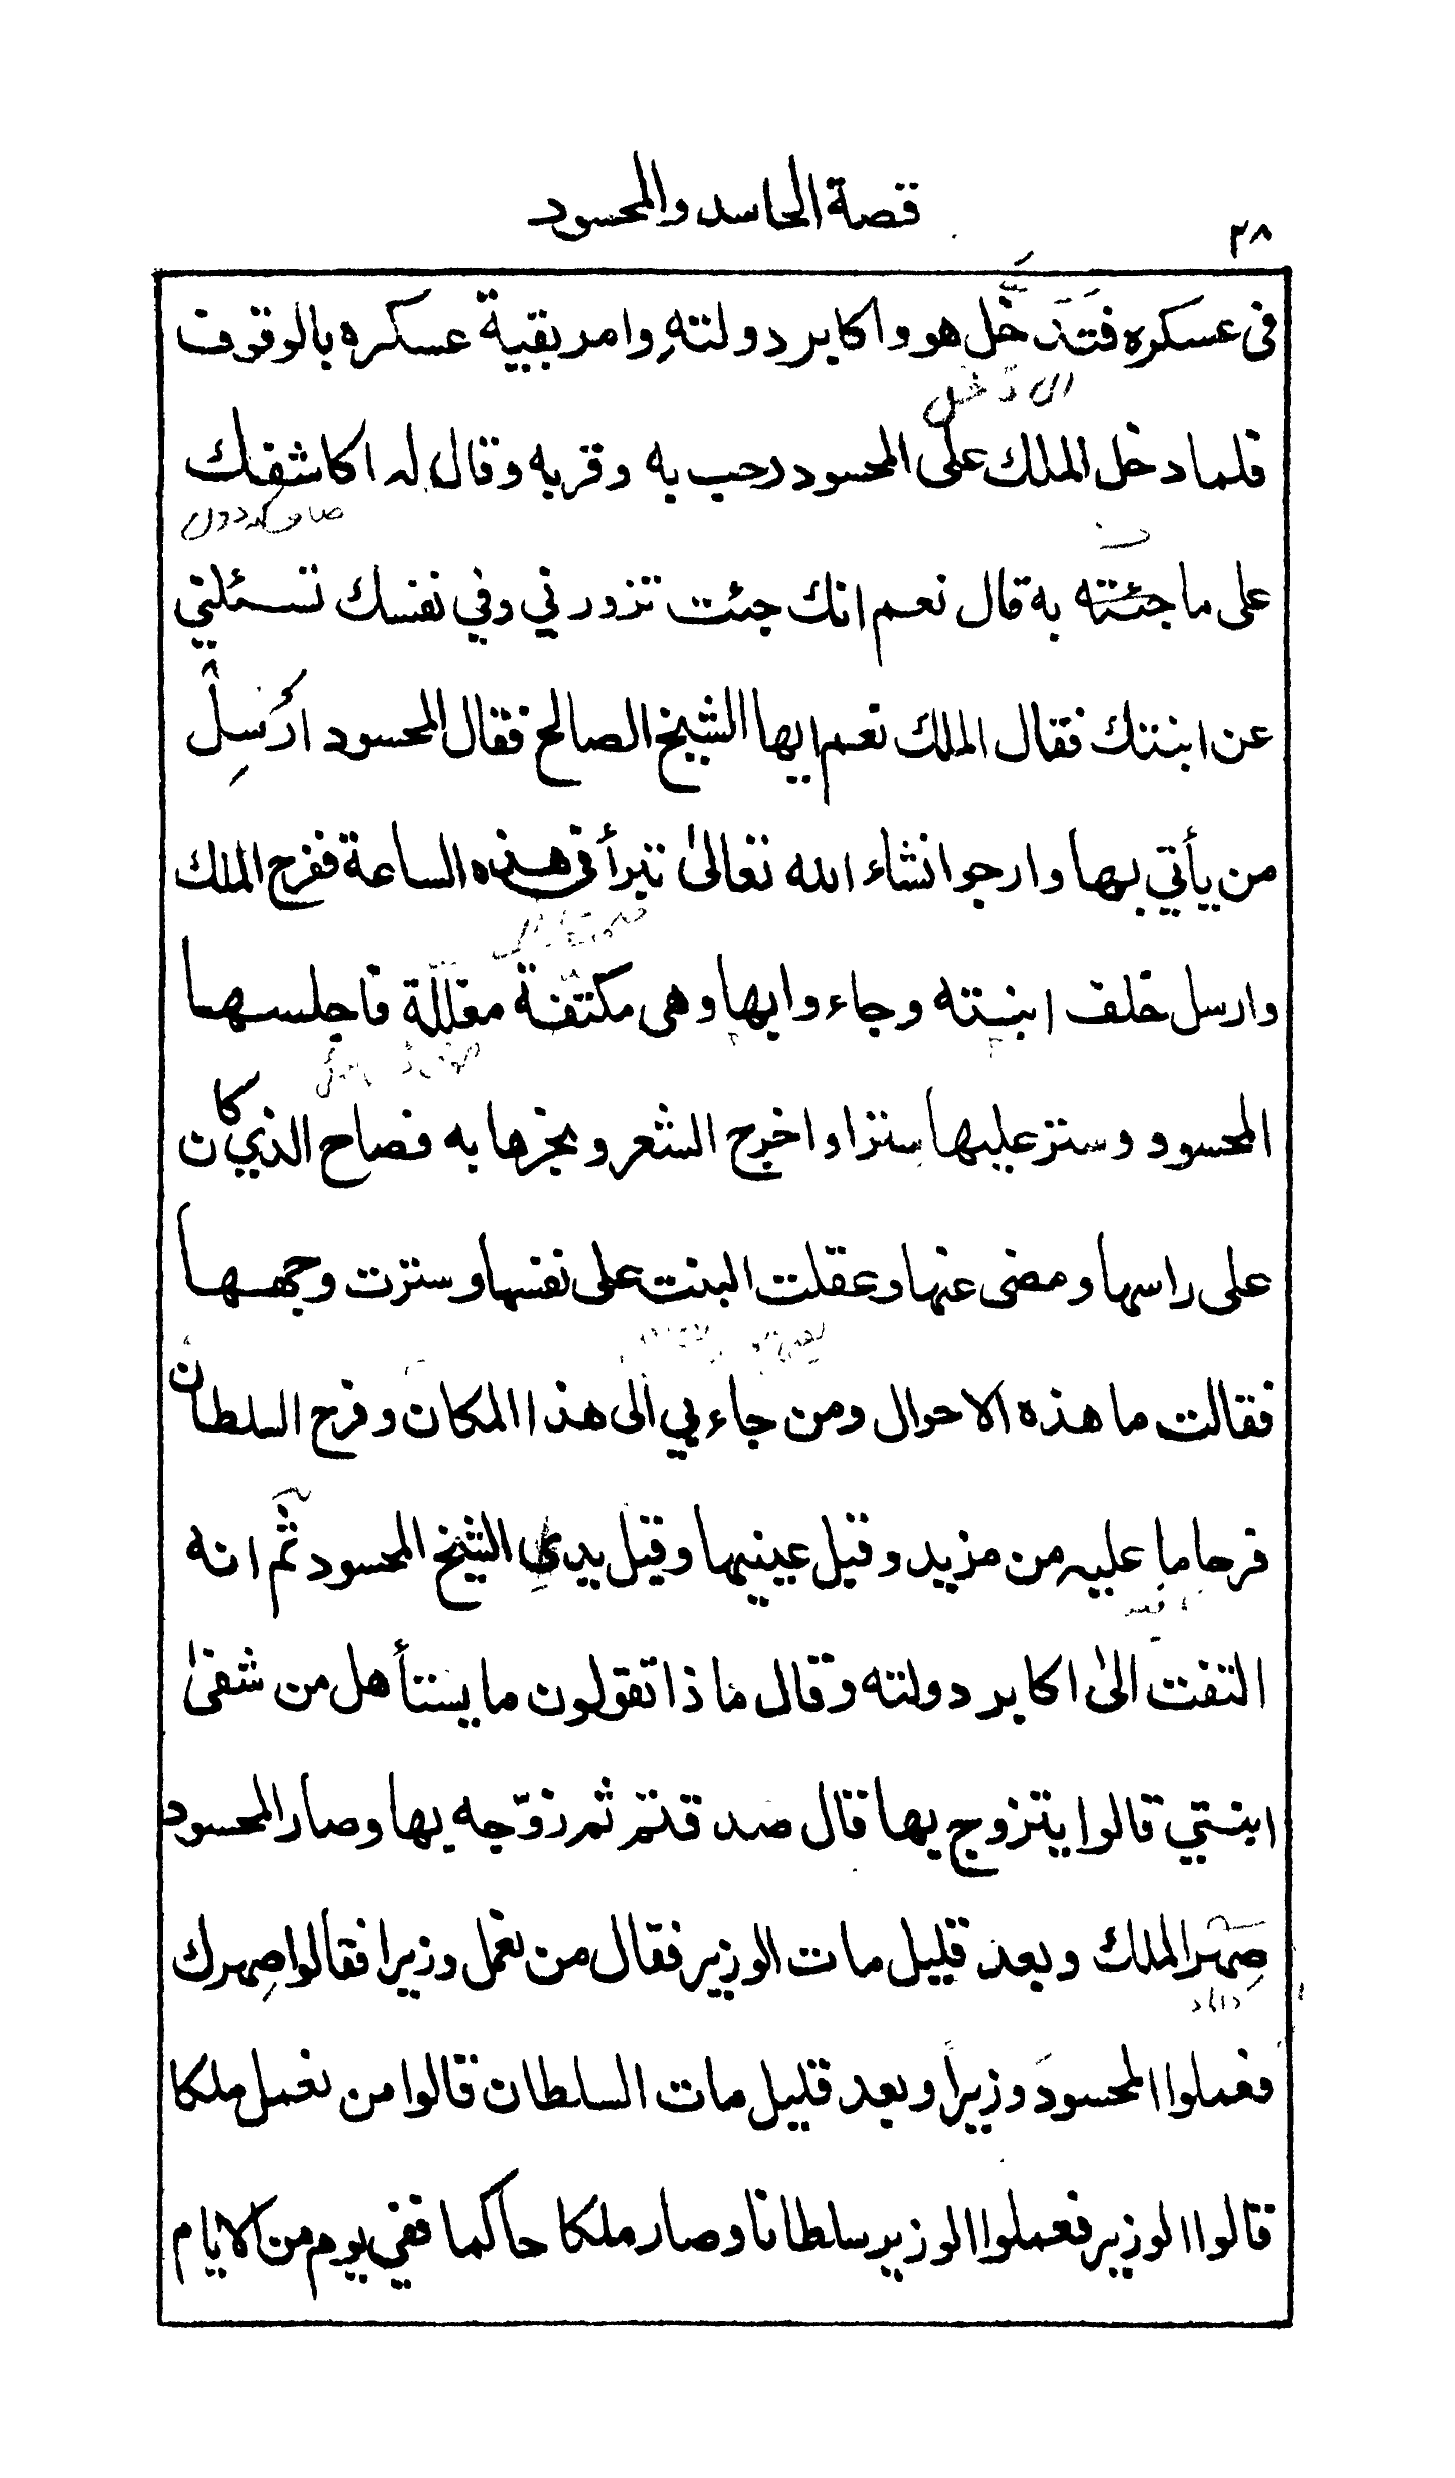 قصة الحاسد والمحسود
٢٨
فى عسكره فتدخل هو واكابر دولته وامر بقية عسكره بالوقوف
فلما دخل الملك على المحسود رحب به وقربه وقال له اكاشفك
على ما جئته به قال نعم انك جئت تزورني وفي نفسك تسئلني
عن ابنتك فقال الملك نعم ايها الشيخ الصالح فقال المحسود ارسل
من يأتي بها وارجو انشاء الله تعالى تبرأ فى هذه الساعة ففرح الملك
وارسل خلف ابنته وجاءوا بها وهى مكتفة مغللة فاجلسها
المحسود وستر عليها سترا واخرج الشعر وبخرها به فصاح الذي كان
على راسها ومضى عنها وعقلت البنت على نفسها وسترت وجهها
فقالت ما هذه الاحوال ومن جاء بي الى هذا المكان وفرح السلطان
فرحا ما عليه من مزيد وقبل عينيها وقبل يدي الشيخ المحسود ثم انه
التفت الى اكابر دولته وقال ما ذا تقولون ما يستأهل من شفى
ابنتي قالوا يتزوج بها قال صدقتم ثم زوّجه بها وصار المحسود
صهر الملك وبعد قليل مات الوزير فقال من نعمل وزيرا فقالوا صهرك
داماد
فعملوا المحسود وزيرا وبعد قليل مات السلطان قالوا من نعمل ملكا
قالوا الوزير فعملوا الوزير سلطانا وصار ملكا حاكما ففي يوم من الايام